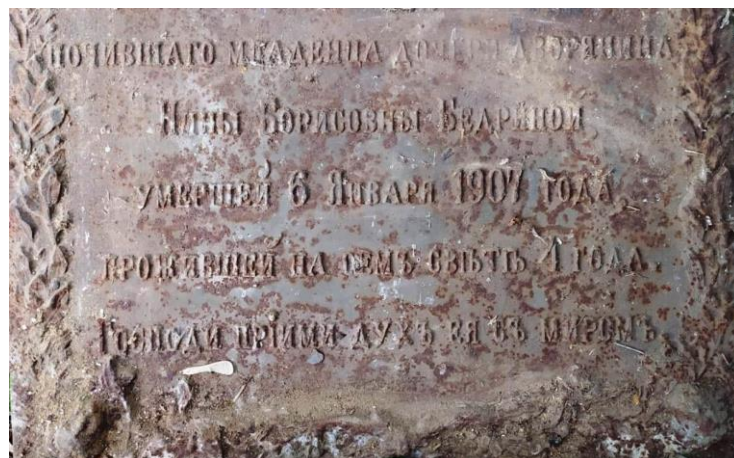 почившаго младенца дочери дворянина
Нины Борисовны Бедриной
умершей 6 Января 1907 года
прожившей на семъ свѣтѣ 4 года.
Господи прiими духъ ея съ миромъ